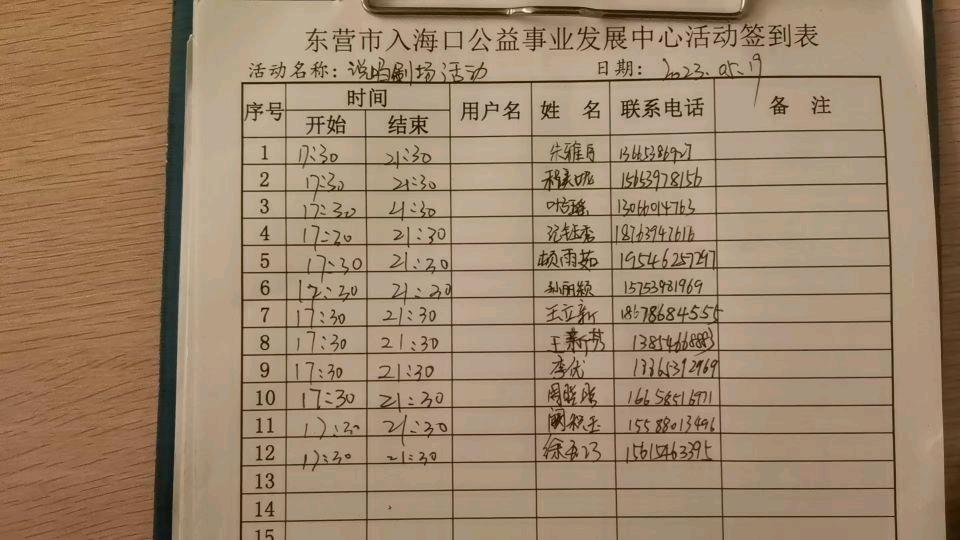 东营市入海口公益事业发展中心活动签到表
活动名称：说唱剧场活动 日期：2023.05.19
序号 时间 用户名 姓名 联系电话 备注
开始 结束
1 17:30 21:30 13665386927
2 17:30 21:30 15653978156
3 17:30 21:30 13066014763
4 17:30 21:30 18763947616
5 17:30 21:30 顾雨茹 19546257297
6 17:30 21:30 孙丽颖 15753981969
7 17:30 21:30 王立新 18678684555
8 17:30 21:30 王新芳
9 17:30 21:30 李优 13365392969
10 17:30 21:30 16658516971
11 17:30 21:30 15588013496
12 17:30 21:30 15615463395
13
14
15